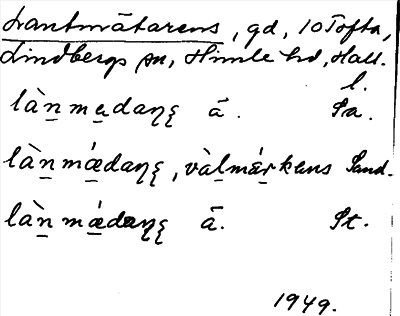 Lantmätarens, gd, 10 Tofta,
Lindbergs sn, Himle hd, Hall.
l.
làn̲ma̲daŋȩ ā. Sa.
làn̲mǽ̲daŋȩ, vàl̲mǽr̲kens Sand.
làn̲mǽ̲daŋȩ ā. St.
1949.